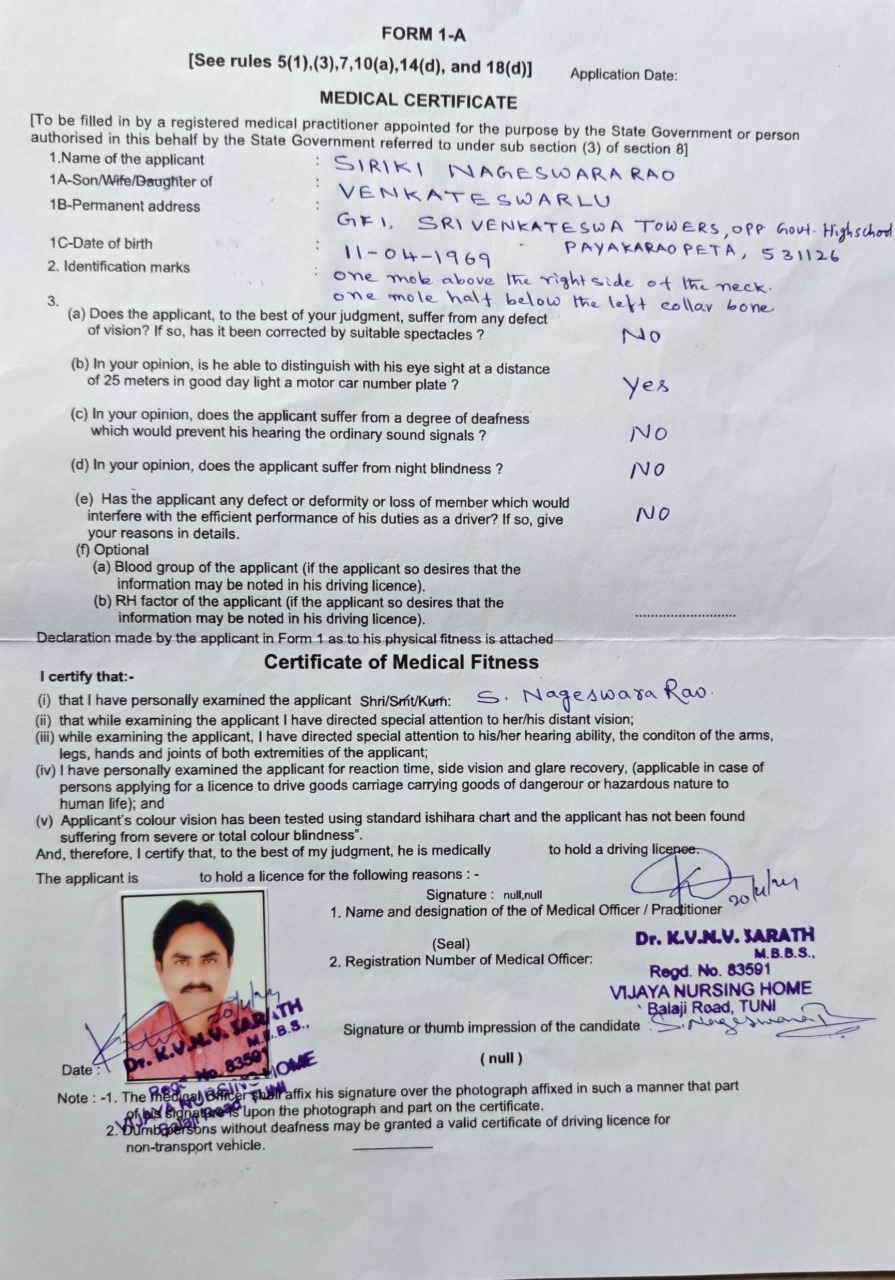 FORM 1-A
[See rules 5(1),(3),7,10(a),14(d), and 18(d)]
Application Date:
MEDICAL CERTIFICATE
[To be filled in by a registered medical practitioner appointed for the purpose by the State Government or person
authorised in this behalf by the State Government referred to under sub section (3) of section 8]
1.Name of the applicant : SIRIKI NAGESWARA RAO
1A-Son/Wife/Daughter of : VENKATESWARLU
1B-Permanent address : GF1, SRI VENKATESWA TOWERS, OPP Govt. Highschool,
PAYAKARAOPETA, 531126
1C-Date of birth : 11-04-1969
2. Identification marks : one mole above the right side of the neck.
one mole half below the left collar bone.
3.
(a) Does the applicant, to the best of your judgment, suffer from any defect
of vision? If so, has it been corrected by suitable spectacles ? NO
(b) In your opinion, is he able to distinguish with his eye sight at a distance
of 25 meters in good day light a motor car number plate ? Yes
(c) In your opinion, does the applicant suffer from a degree of deafness
which would prevent his hearing the ordinary sound signals ? NO
(d) In your opinion, does the applicant suffer from night blindness ? NO
(e) Has the applicant any defect or deformity or loss of member which would
interfere with the efficient performance of his duties as a driver? If so, give NO
your reasons in details.
(f) Optional
(a) Blood group of the applicant (if the applicant so desires that the
information may be noted in his driving licence).
(b) RH factor of the applicant (if the applicant so desires that the
information may be noted in his driving licence). ........................
Declaration made by the applicant in Form 1 as to his physical fitness is attached
Certificate of Medical Fitness
I certify that:-
(i) that I have personally examined the applicant Shri/Smt/Kum: S. Nageswara Rao.
(ii) that while examining the applicant I have directed special attention to her/his distant vision;
(iii) while examining the applicant, I have directed special attention to his/her hearing ability, the conditon of the arms,
legs, hands and joints of both extremities of the applicant;
(iv) I have personally examined the applicant for reaction time, side vision and glare recovery, (applicable in case of
persons applying for a licence to drive goods carriage carrying goods of dangerour or hazardous nature to
human life); and
(v) Applicant's colour vision has been tested using standard ishihara chart and the applicant has not been found
suffering from severe or total colour blindness".
And, therefore, I certify that, to the best of my judgment, he is medically to hold a driving licence.
The applicant is to hold a licence for the following reasons : -
Signature : null,null
1. Name and designation of the of Medical Officer / Practitioner
(Seal)
2. Registration Number of Medical Officer:
Dr. K.V.N.V. SARATH
M.B.B.S.,
Regd. No. 83591
VIJAYA NURSING HOME
Balaji Road, TUNI
Signature or thumb impression of the candidate : S. Nageswara R
Dr. K.V.N.V. SARATH
M.B.B.S.,
Regd. No. 83591
VIJAYA NURSING HOME
Balaji Road, TUNI
Date :
( null )
Note : -1. The medical officer shall affix his signature over the photograph affixed in such a manner that part
of his signature is upon the photograph and part on the certificate.
2. Dumb persons without deafness may be granted a valid certificate of driving licence for
non-transport vehicle.